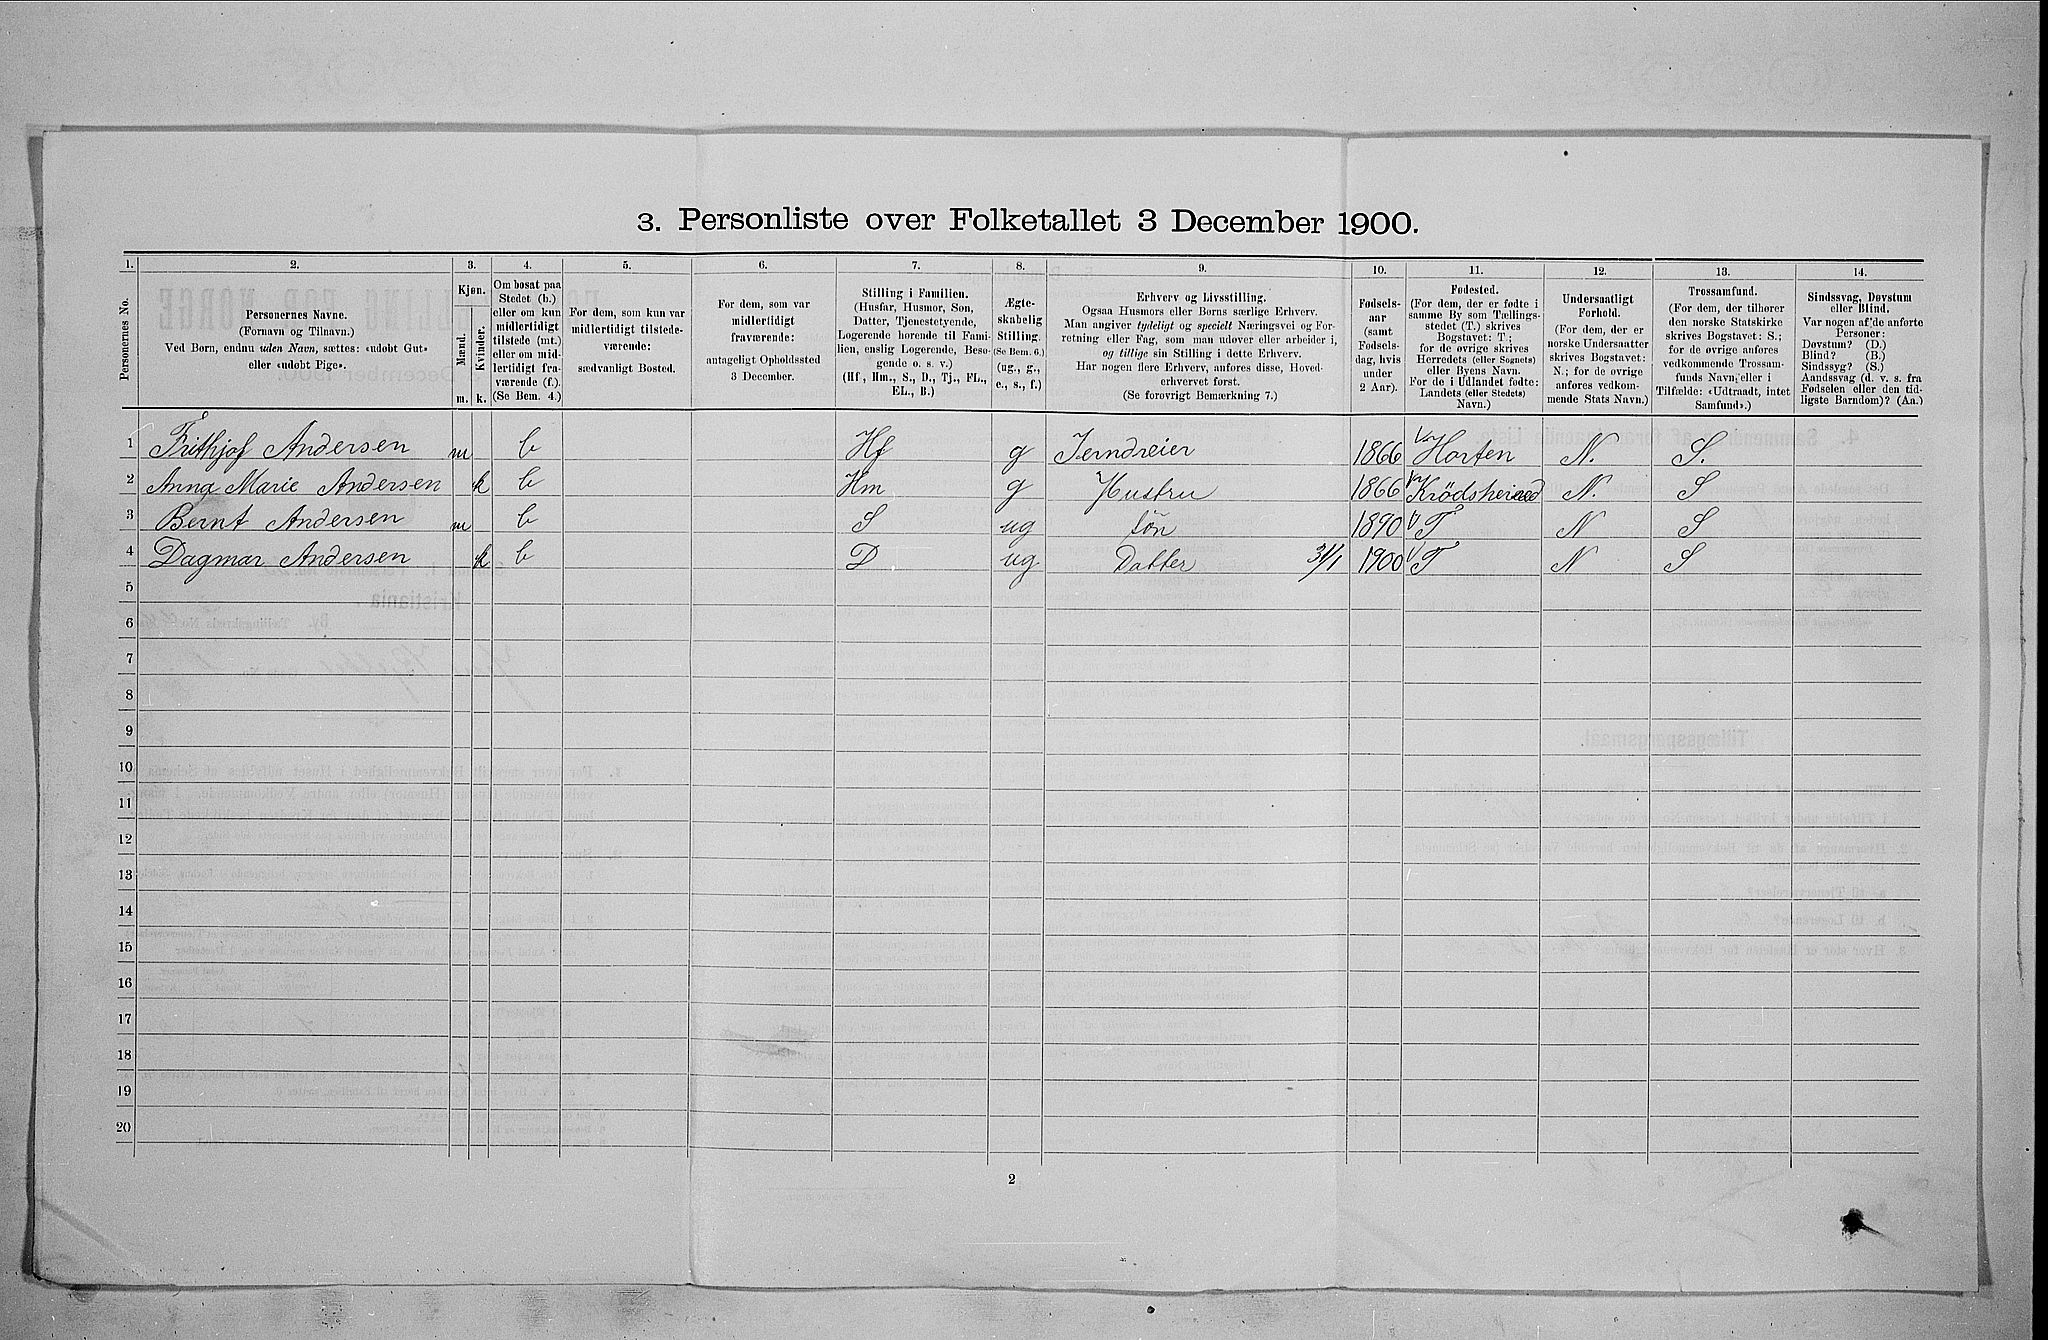 3. Personliste over Folketallet 3 December 1900.
1. 2. 3. 4. 5. 6. 7. 8. 9. 10. 11. 12. 13. 14.
Personernes No.
Personernes Navne.
(Fornavn og Tilnavn.)
Ved Børn, endnu uden Navn, sættes: «udøbt Gut»
eller «udøbt Pige».
Kjøn.
Mænd.
Kvinder.
m. k.
Om bosat paa
Stedet (b.)
eller om kun
midlertidigt
tilstede (mt.)
eller om mid-
lertidigt fra-
værende (f.).
(Se Bem. 4.)
For dem, som kun var
midlertidigt tilstede-
værende:
sædvanligt Bosted.
For dem, som var
midlertidigt
fraværende:
antageligt Opholdssted
3 December.
Stilling i Familien.
(Husfar, Husmor, Søn,
Datter, Tjenestetyende,
Logerende hørende til Fami-
lien, enslig Logerende, Besø-
gende o. s. v.)
(Hf, Hm., S., D., Tj., FL.,
EL., B.)
Ægte-
skabelig
Stilling.
(Se Bem. 6.)
(ug., g.,
e., s., f.)
Erhverv og Livsstilling.
Ogsaa Husmors eller Børns særlige Erhverv.
Man angiver tydeligt og specielt Næringsvei og For-
retning eller Fag, som man udøver eller arbeider i,
og tillige sin Stilling i dette Erhverv.
Har nogen flere Erhverv, anføres disse, Hoved-
erhvervet først.
(Se forøvrigt Bemærkning 7.)
Fødsels-
aar
(samt
Fødsels-
dag, hvis
under
2 Aar).
Fødested.
(For dem, der er fødte i
samme By som Tællings-
stedet (T.) skrives
Bogstavet: T.;
for de øvrige skrives
Herredets (eller Sognets)
eller Byens Navn.
For de i Udlandet fødte:
Landets (eller Stedets)
Navn.)
Undersaatligt
Forhold.
(For dem, der er
norske Undersaatter
skrives Bogstavet:
N.; for de øvrige
anføres vedkom-
mende Stats Navn.)
Trossamfund.
(For dem, der tilhører
den norske Statskirke
skrives Bogstavet: S.;
for de øvrige anføres
vedkommende Trossam-
funds Navn, eller i
Tilfælde: «Udtraadt, intet
Samfund».)
Sindssvag, Døvstum
eller Blind.
Var nogen af de anførte
Personer:
Døvstum? (D.)
Blind? (B.)
Sindssyg? (S.)
Aandssvag (d. v. s. fra
Fødselen eller den tid-
ligste Barndom)? (Aa.)
1 Frithjof Andersen m b Hf g Jerndreier 1866 Horten N. S.
2 Anna Marie Andersen k b Hm g Hustru 1866 Krødsherred N. S
3 Bernt Andersen m b S ug Søn 1890 T N S
4 Dagmar Andersen k b D ug Datter 31/1 1900 T N S
5
6
7
8
9
10
11
12
13
14
15
16
17
18
19
20
2